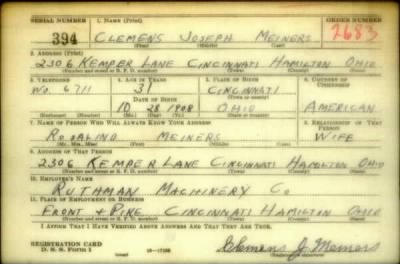 SERIAL NUMBER 1. NAME (Print) ORDER NUMBER
394 CLEMENS JOSEPH MEINERS 2683
(First) (Middle) (Last)
2. ADDRESS (Print)
2306 KEMPER LANE CINCINNATI HAMILTON OHIO
(Number and street or R. F. D. number) (Town) (County) (State)
3. TELEPHONE 4. AGE IN YEARS 5. PLACE OF BIRTH 6. COUNTRY OF CITIZENSHIP
WO. 6711 31 CINCINNATI
DATE OF BIRTH (Town or county)
10 28 1908 OHIO AMERICAN
(Mo.) (Day) (Yr.) (State or country)
7. NAME OF PERSON WHO WILL ALWAYS KNOW YOUR ADDRESS 8. RELATIONSHIP OF THAT PERSON
ROSALIND MEINERS WIFE
9. ADDRESS OF THAT PERSON
2306 KEMPER LANE CINCINNATI HAMILTON OHIO
(Number and street or R. F. D. number) (Town) (County) (State)
10. EMPLOYER'S NAME
RUTHMAN MACHINERY CO
11. PLACE OF EMPLOYMENT OR BUSINESS
FRONT & PIKE CINCINNATI HAMILTON OHIO
(Number and street or R. F. D. number) (Town) (County) (State)
I AFFIRM THAT I HAVE VERIFIED ABOVE ANSWERS AND THAT THEY ARE TRUE.
REGISTRATION CARD
D. S. S. Form 1 16-17105 Clemens J. Meiners